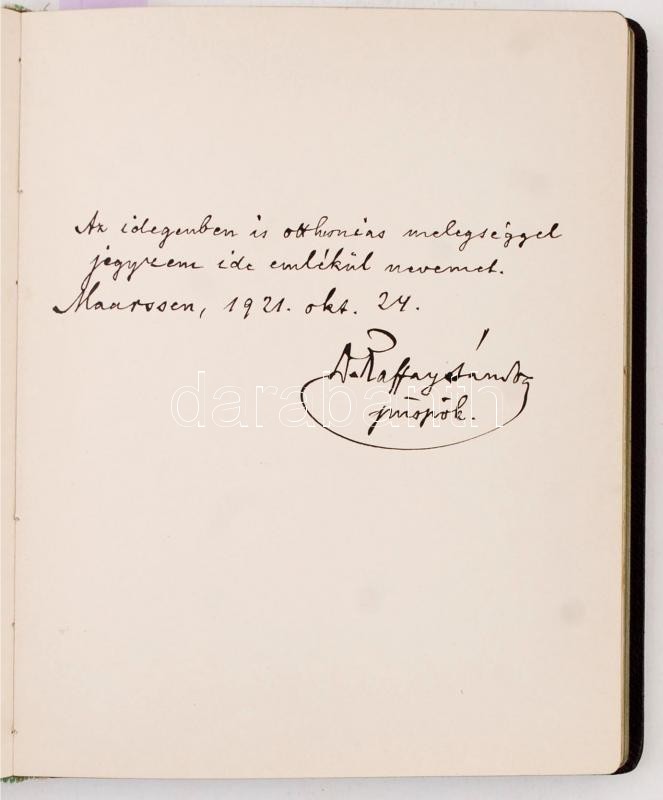 Az idegenben is otthonias melegséggel
jegyzem ide emlékül nevemet.
Maarssen, 1921. okt. 24.
D. Raffay Sándor
püspök.
darabanth